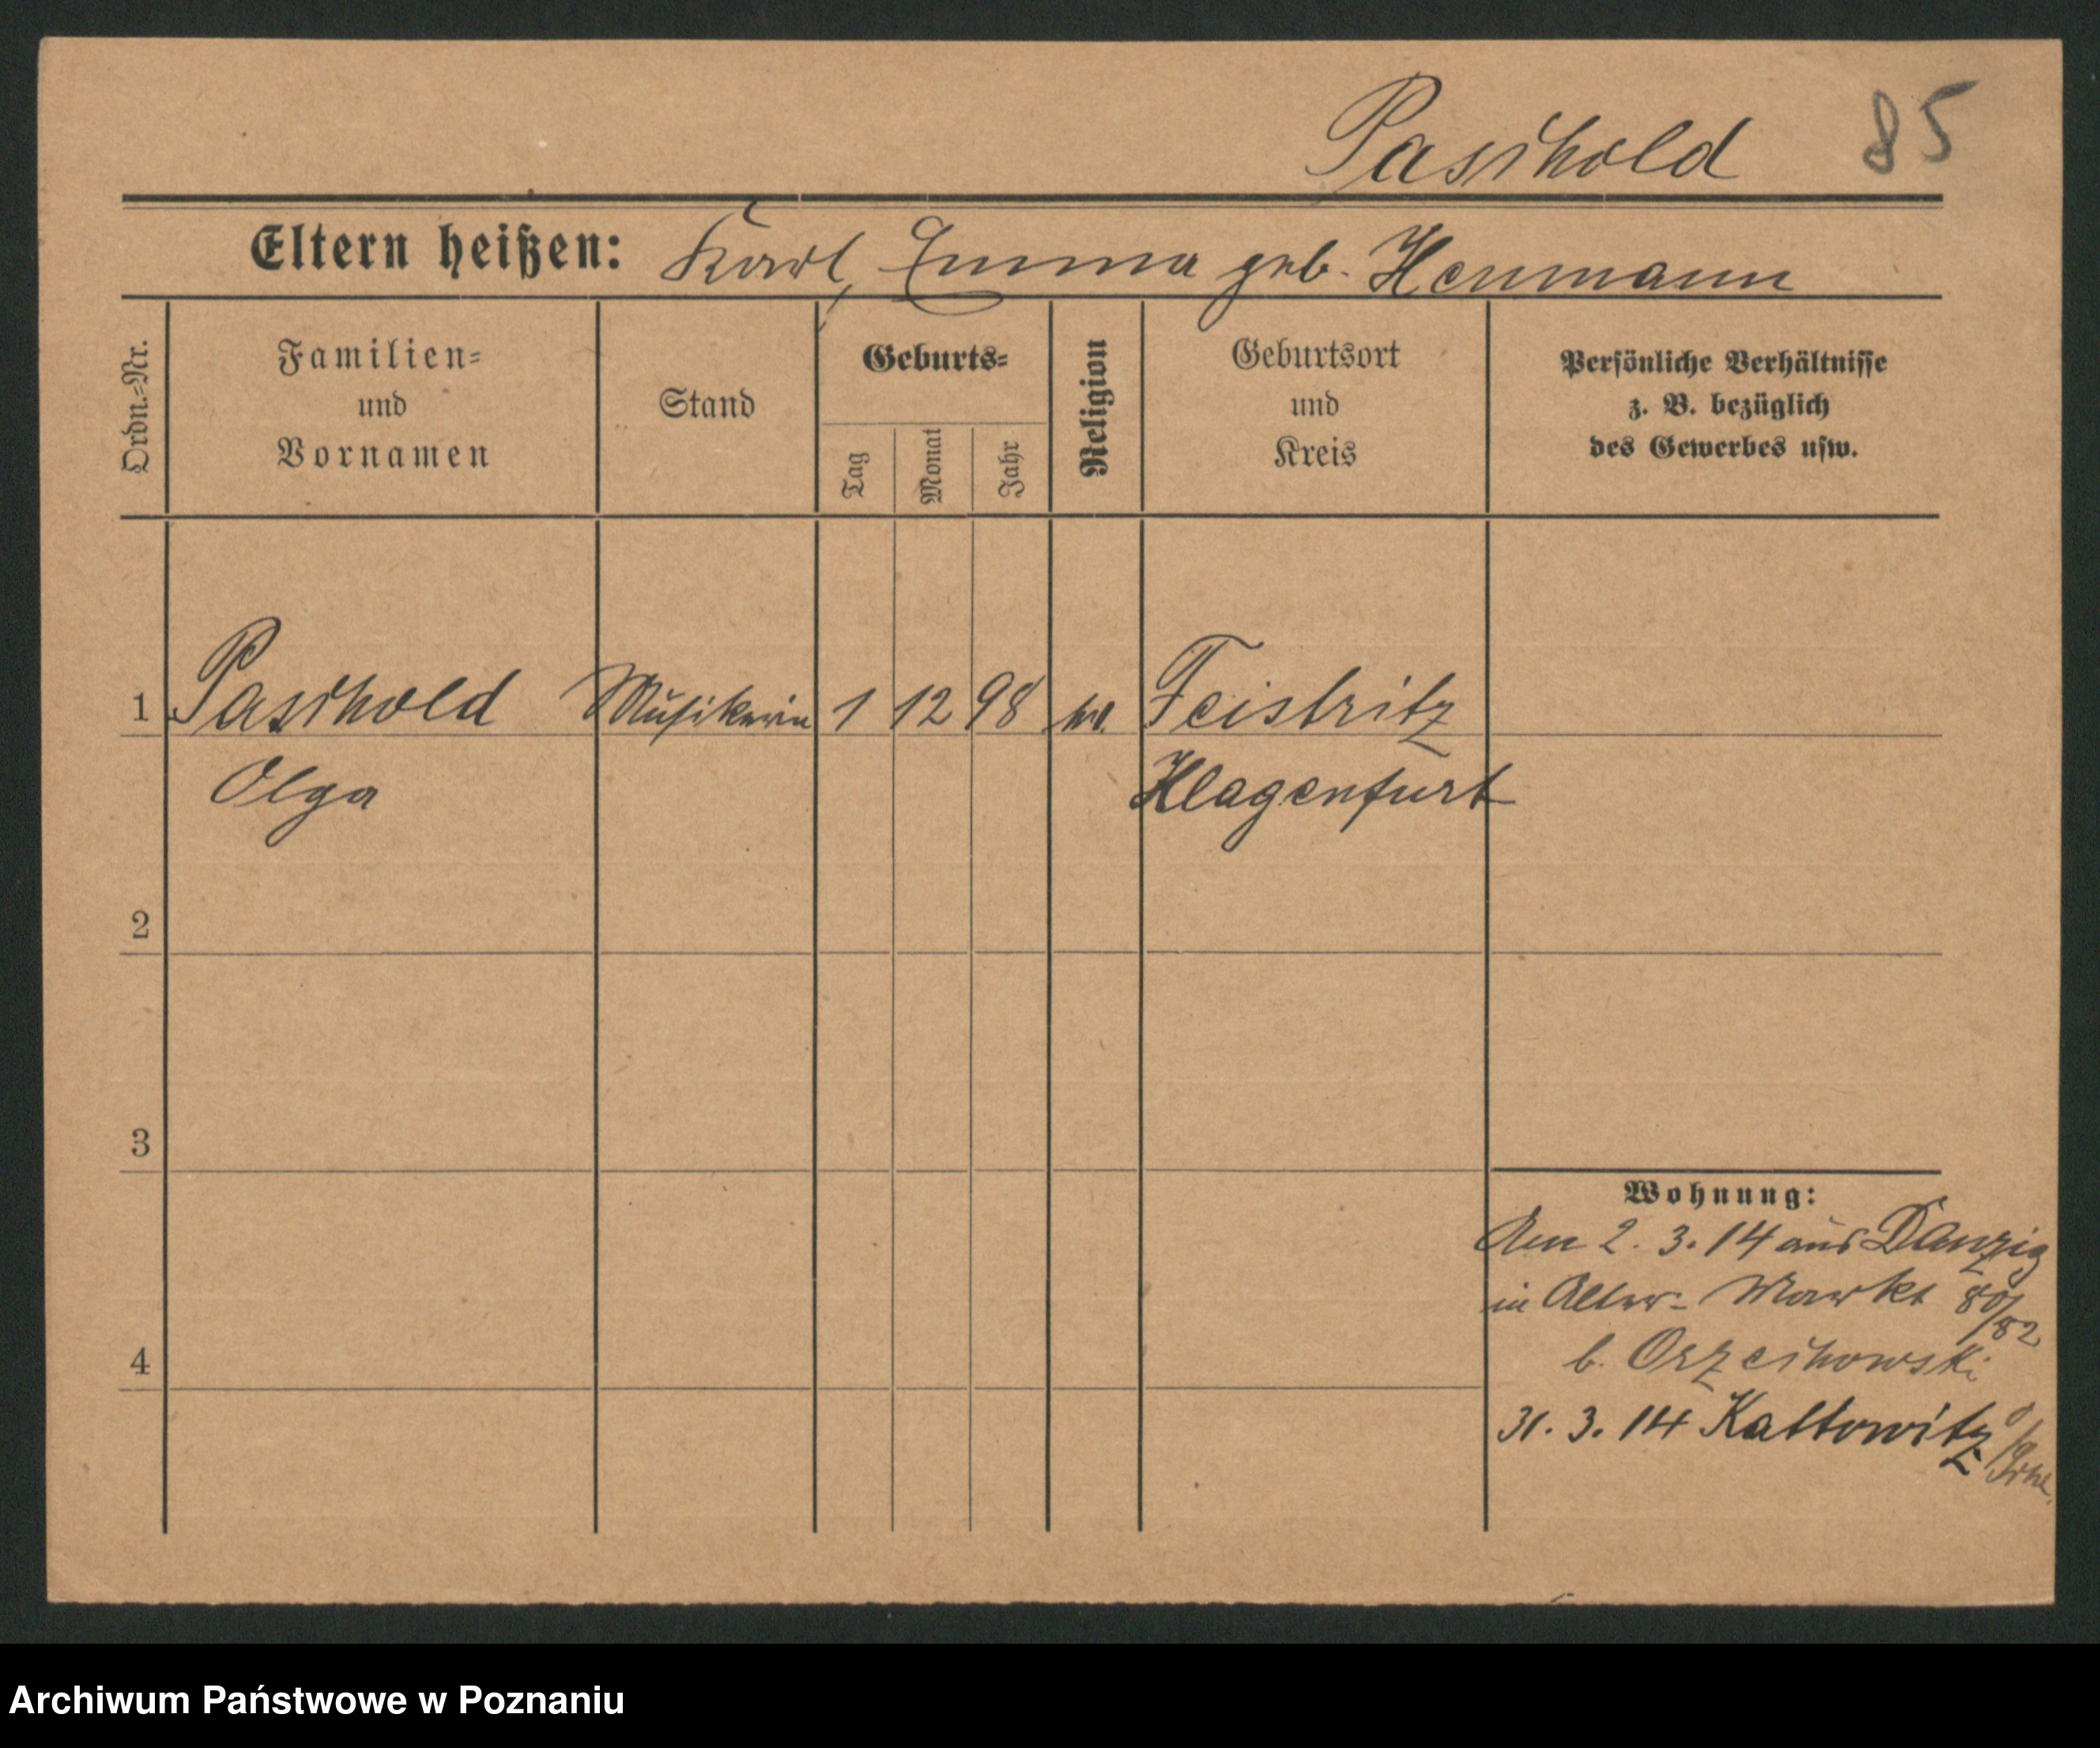 Paschold 85
Eltern heißen: Karl, Emma geb. Henmann
Ordn.=Nr.
Familien=
und
Vornamen
Stand
Geburts=
Tag
Monat
Jahr
Religion
Geburtsort
und
Kreis
Persönliche Verhältnisse
z. B. bezüglich
des Gewerbes usw.
1 Paschold Musikerin 1 12 98 Feistritz
Olga Klagenfurt
2
3
4
Wohnung:
Am 2. 3. 14 aus Danzig
in Alter- Markt 80/82
b. Orzechowski
31. 3. 14 Kattowitz
Archiwum Państwowe w Poznaniu